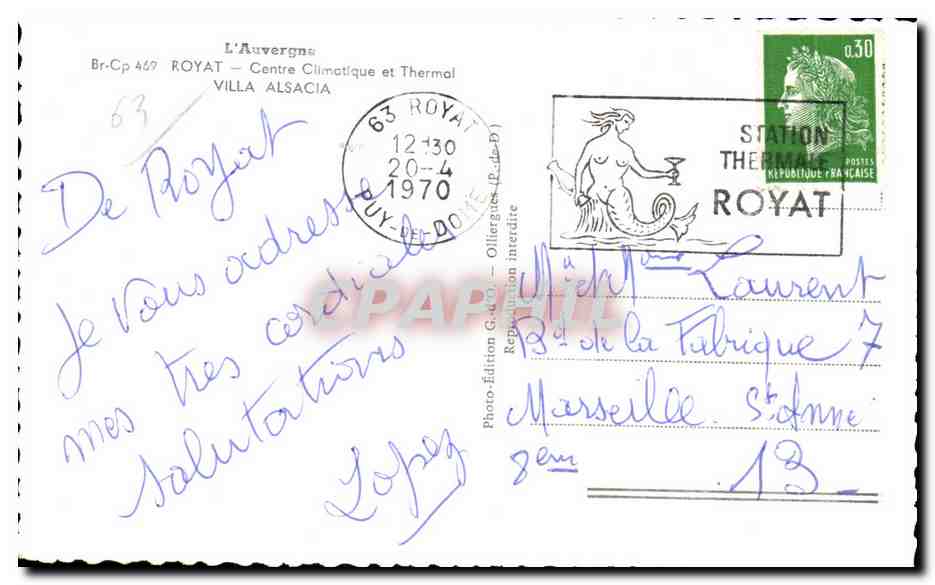 L'Auvergne
Br-Cp 469 ROYAT — Centre Climatique et Thermal
VILLA ALSACIA
63
De Royat
Je vous adresse
mes très cordiales
salutations
Lopez
63 ROYAT
12H30
20-4
1970
PUY-DE-DOME
Photo-Edition G.-d'O. - Olliergues (P.-de-D)
Reproduction interdite
STATION
THERMALE
ROYAT
0,30
POSTES
REPUBLIQUE FRANÇAISE
CPAPHIL
Mr et Mme Laurent
Bd de la Fabrique 7
Marseille. St Anne
8ème
13